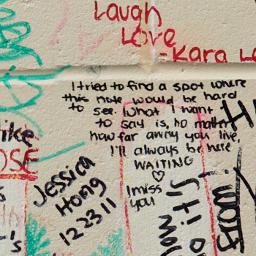 Laugh
Love
-Kara Le
I tried to find a spot where
this note would be hard
to see. What I want
to say is, no matter
how far away you live
I'll always be here
WAITING
♡
I miss
you
Jessica
Hong
122311
ike
OSE